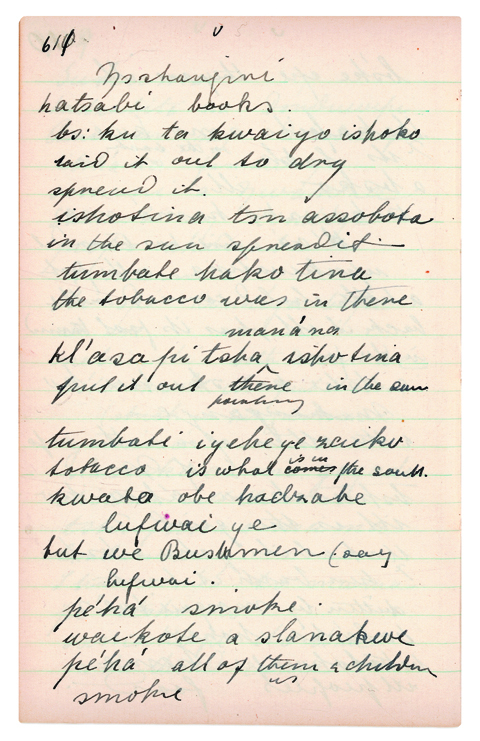 hatsabi books.
bs: ku ta kwaiyo ishoko
laid it out to dry
spread it.
ishotina tsn assobota
in the sun spread it
tumbate hako tina
the tobacco was in there
manána
kl'asa pi tsha ishotina
put it out there in the sun
pointing
tumbati iyeheye zaiko
is in
tobacco is what comes the south.
kwata obe hadzabe
lufwai ye
but we Bushmen (say
lufwai.
péhá smoke.
waikote a slanakwe
péhá all of them & children
us
smoke